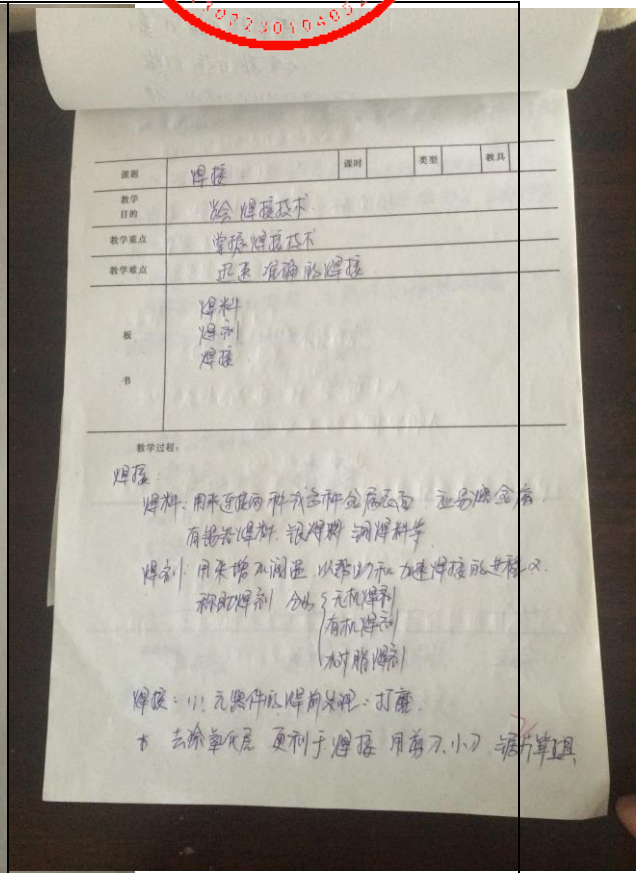 1302230104052
课题 焊接 课时 类型 教具
教学目的 学会焊接技术.
教学重点 掌握焊接技术
教学难点 迅速准确的焊接.
板书
焊料
焊剂
焊接.
教学过程:
焊接:
焊料: 用来连接两种或多种金属表面, 是易熔金属.
有锡铅焊料. 银焊料 铜焊料等
焊剂: 用来增加润湿, 以帮助和加速焊接的进程, 又
称助焊剂 分为 { 无机焊剂
有机焊剂
树脂焊剂
焊接: (1). 元器件的焊前处理: 打磨.
* 去除氧化层 更利于焊接 用剪刀.小刀 锯片等工具